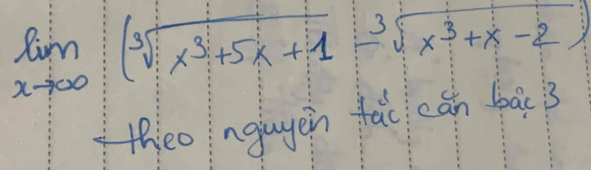 lim x→∞ (∛(x³+5x+1) - ∛(x³+x-2))
theo nguyên tắc căn bậc 3